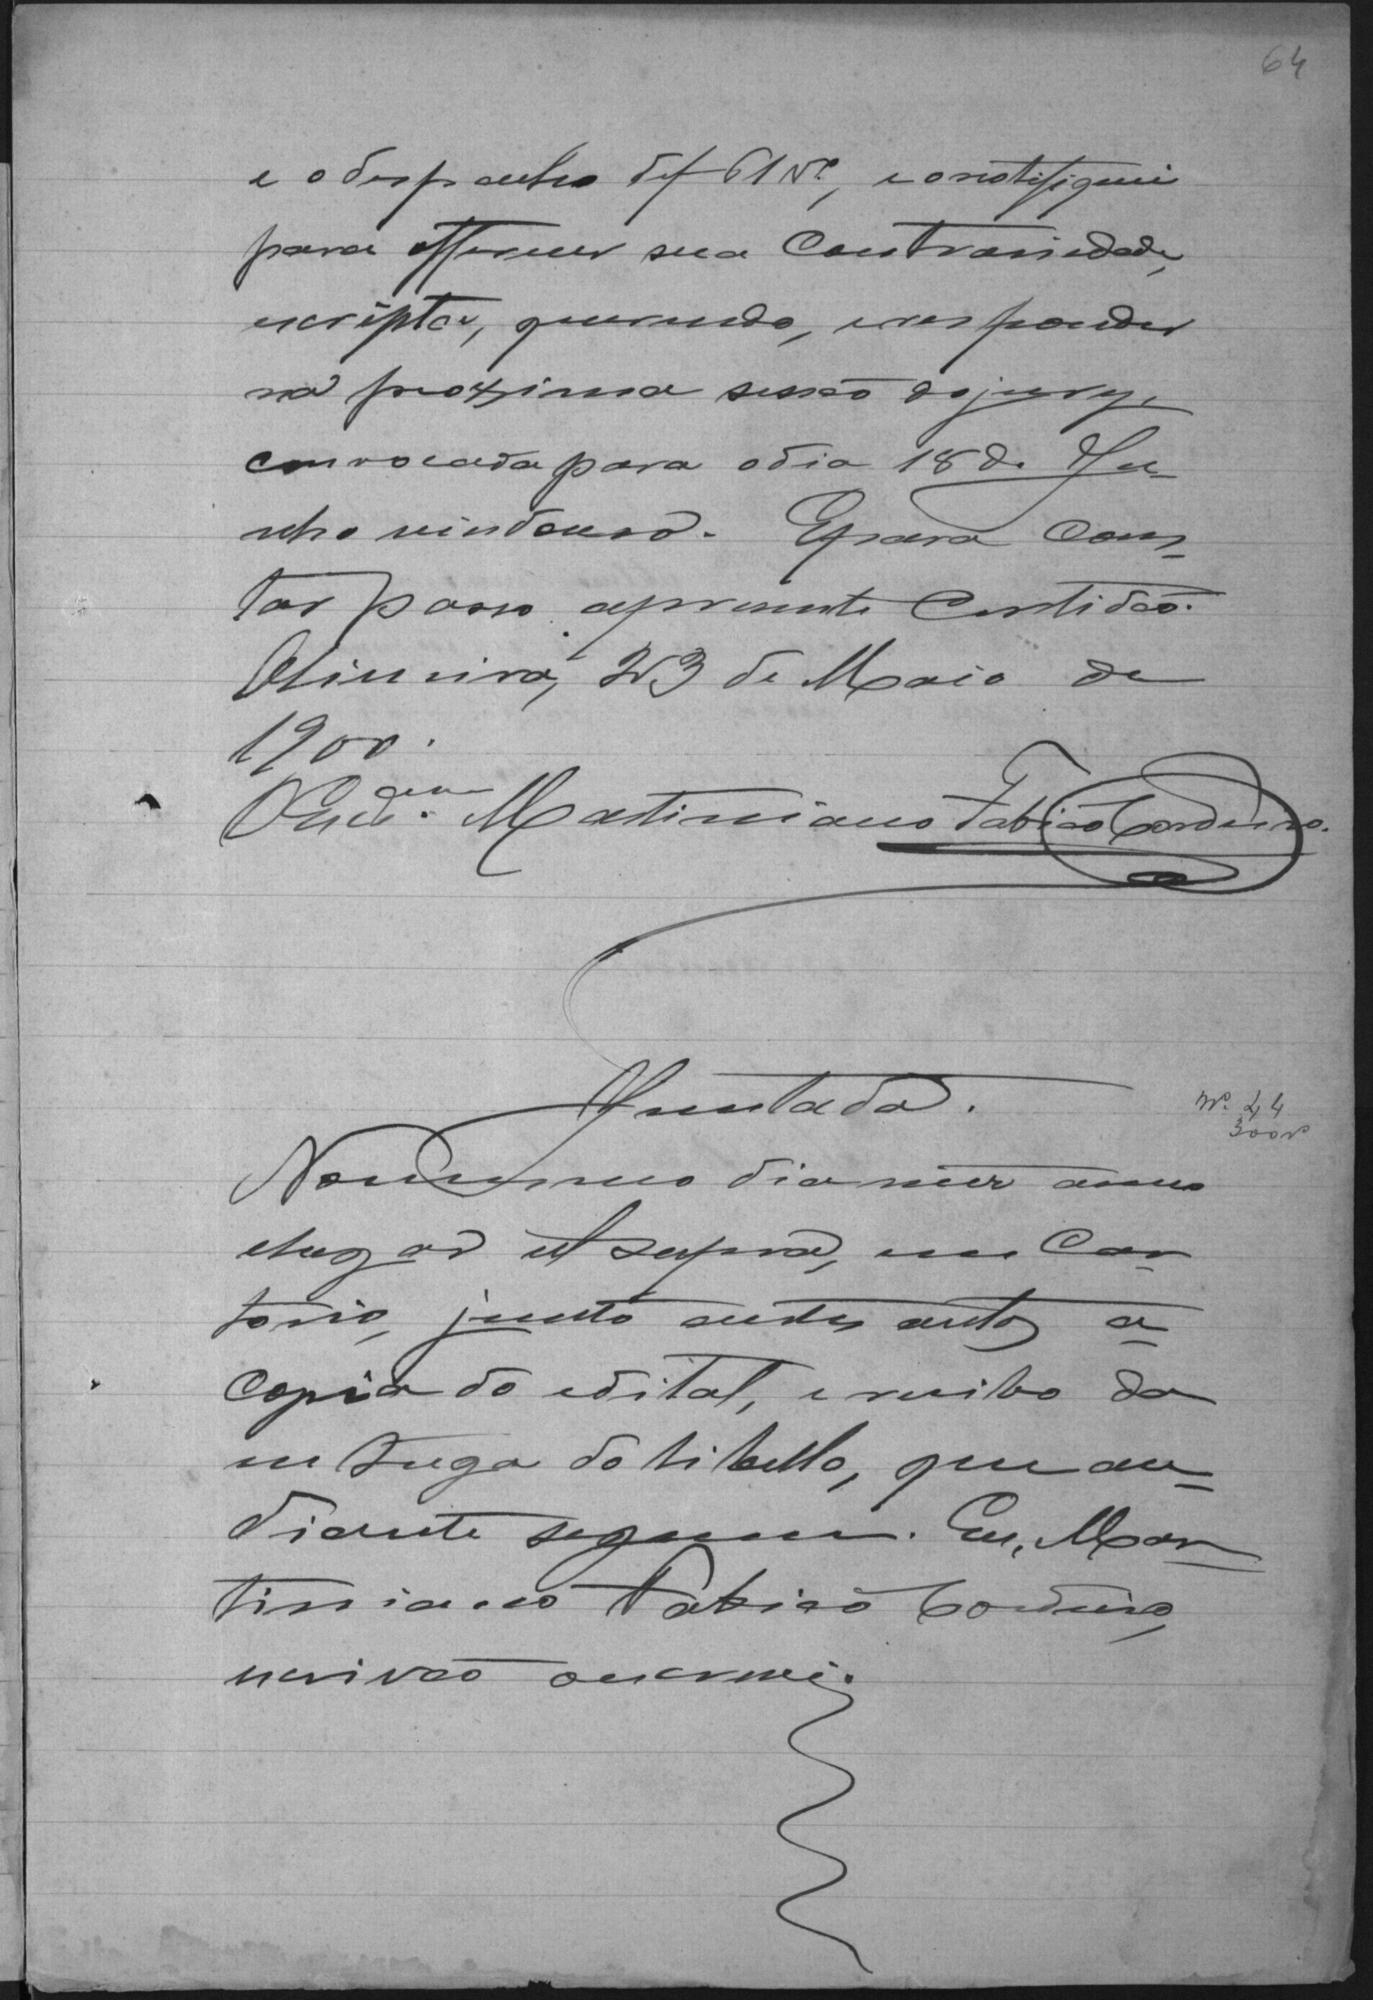 64
e o despacho de f 61 vº, e o notifiquei
para offerecer sua contrariedade,
escripta, querendo, e responder
na proxima sessão do jury,
convocada para o dia 18 de Ju=
nho vindouro. E para cons=
tar passo a presente certidão.
Oliveira, 23 de Maio de
1900.
O Escram. Martimiano Fabião Cordeiro.
Juntada.
Nº 44
300 rs
No mesmo dia mez anno
e lugar ut supra, em car=
torio, junto a estes autos a=
copia do edital, e recibo da
entrega do libello, que a=
diante seguem. Eu, Mar=
timiano Fabião Cordeiro,
escrivão o escrevi.